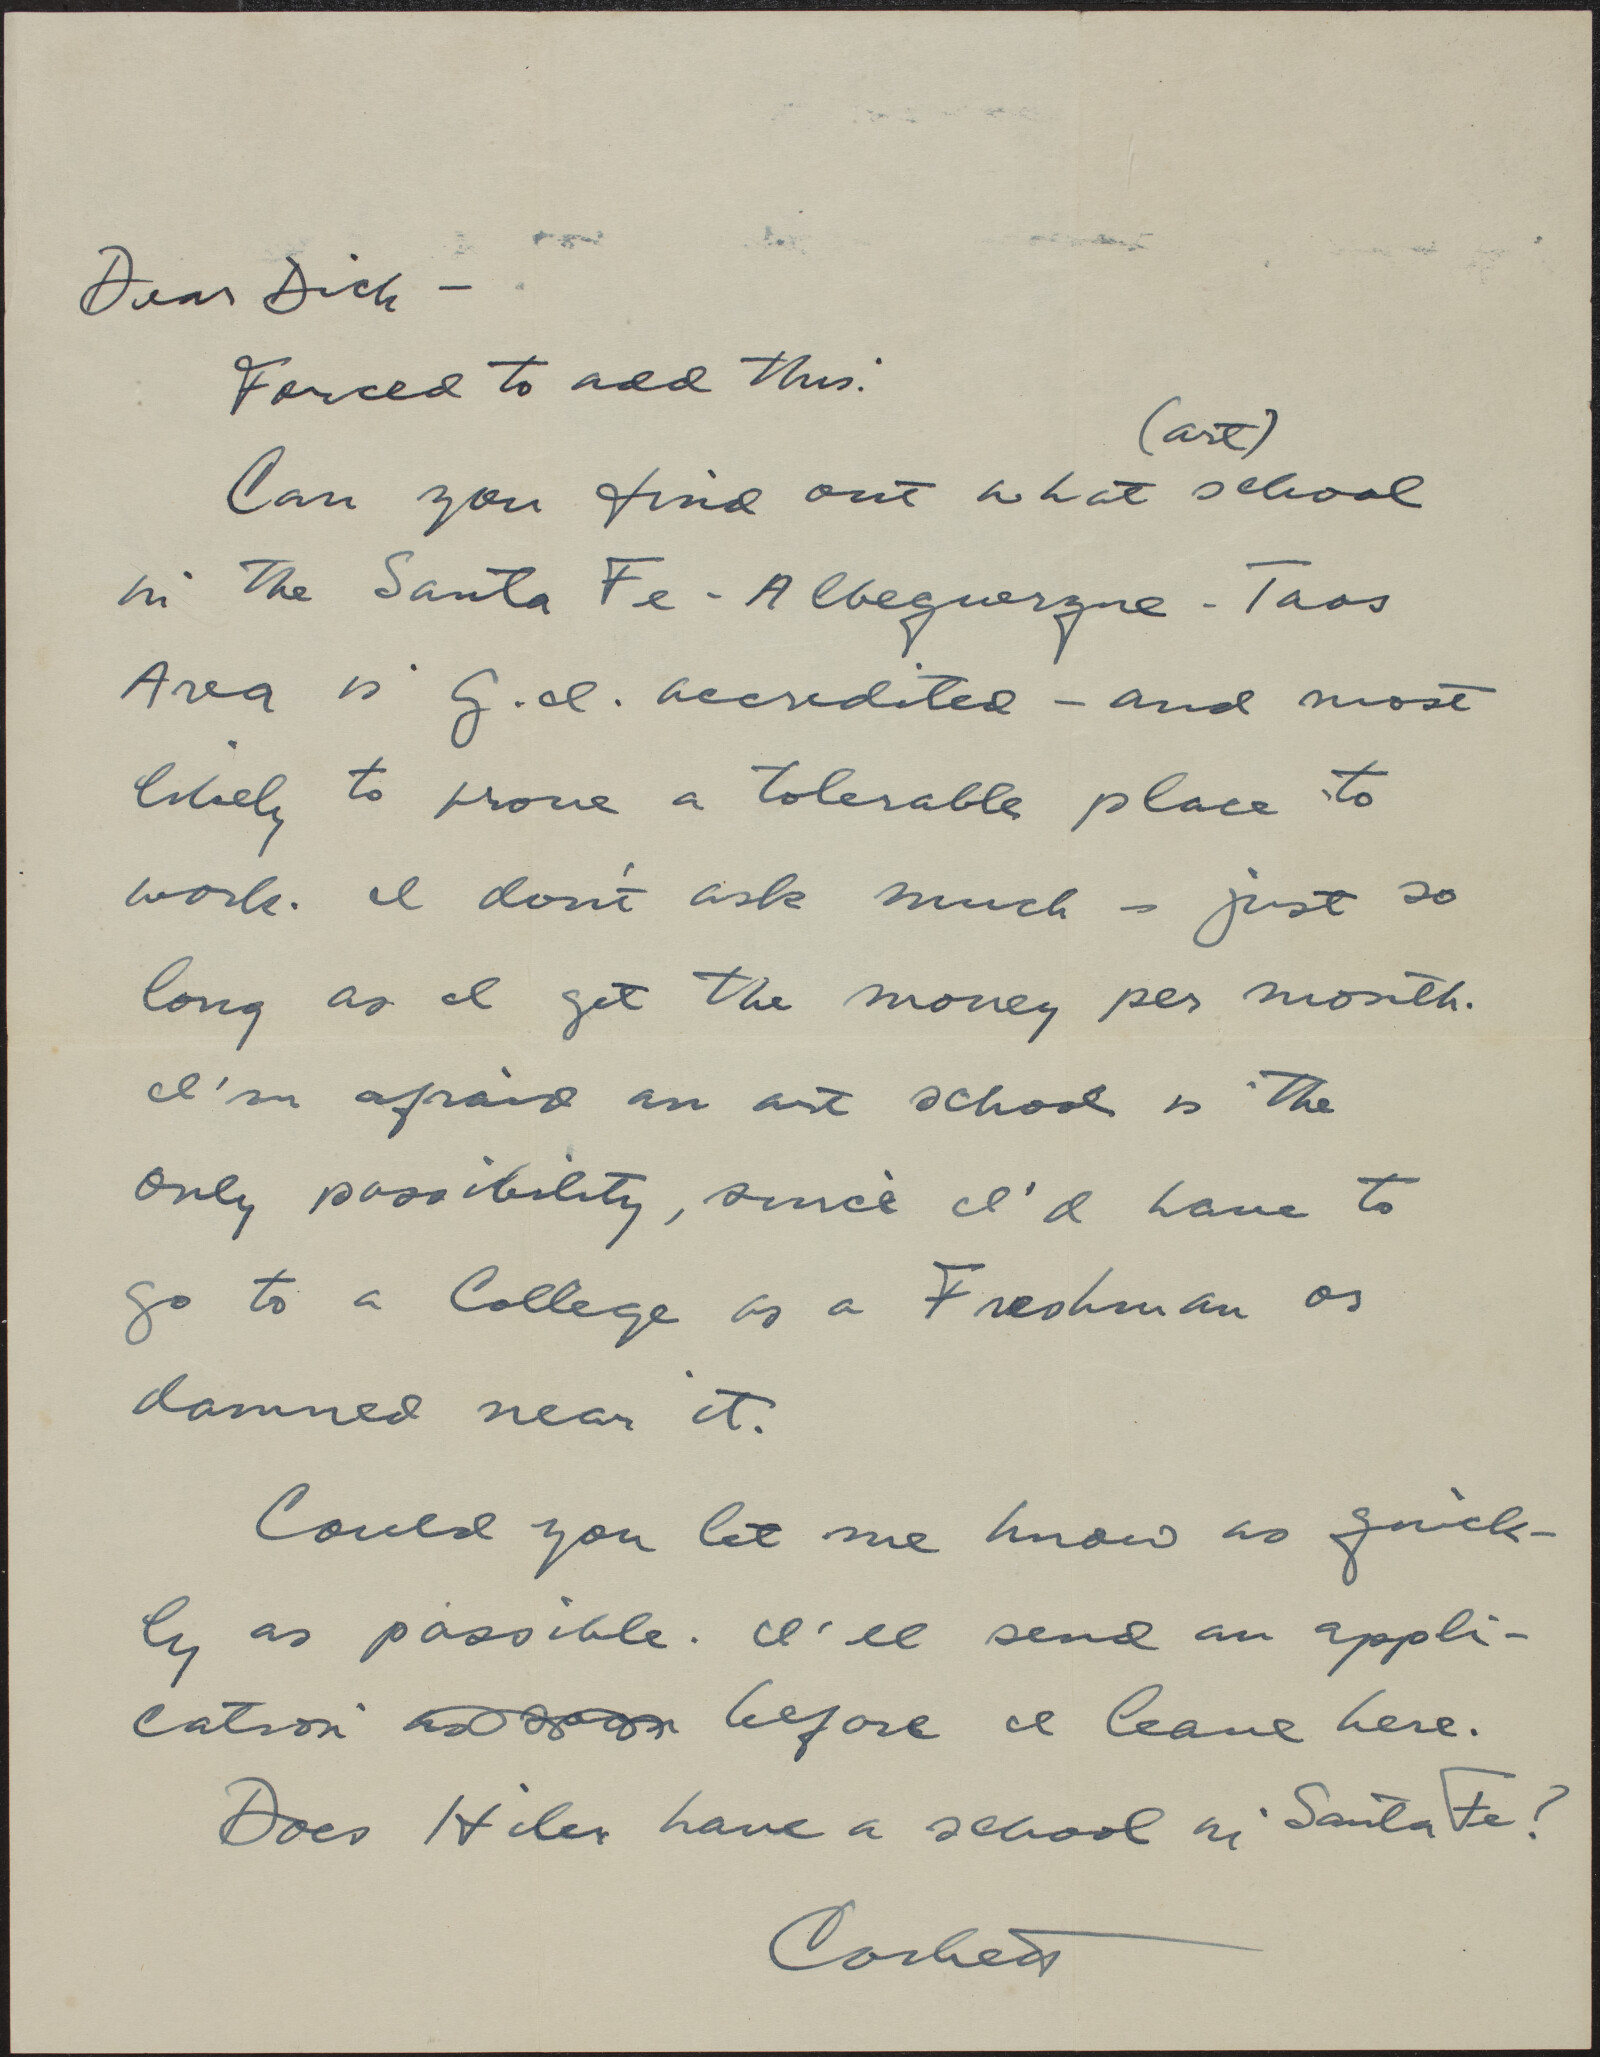 Dear Dick –
Forced to add this:
(art)
Can you find out what school
in the Santa Fe - Albequerque - Taos
Area is G.I. accredited – and most
likely to prove a tolerable place to
work. I don't ask much – just so
long as I get the money per month.
I'm afraid an art school is the
only possibility, since I'd have to
go to a College as a Freshman or
damned near it.
Could you let me know as quick-
ly as possible. I'll send an appli-
cation as soon before I leave here.
Does Hiler have a school in Santa Fe?
Corbett